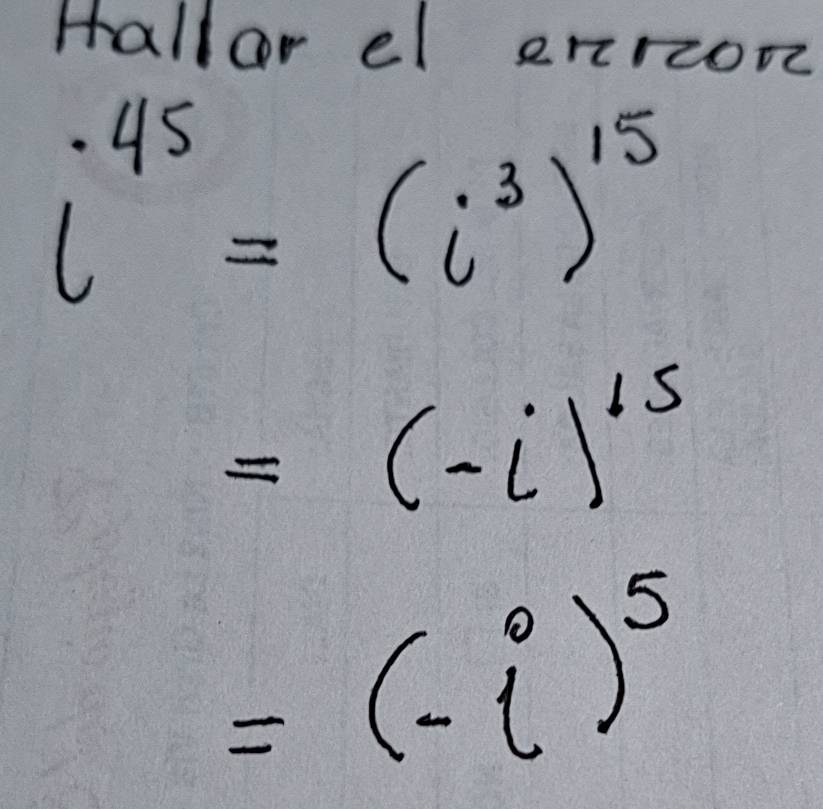 Hallar el error
i^45 = (i^3)^15
= (-i)^15
= (-i)^5